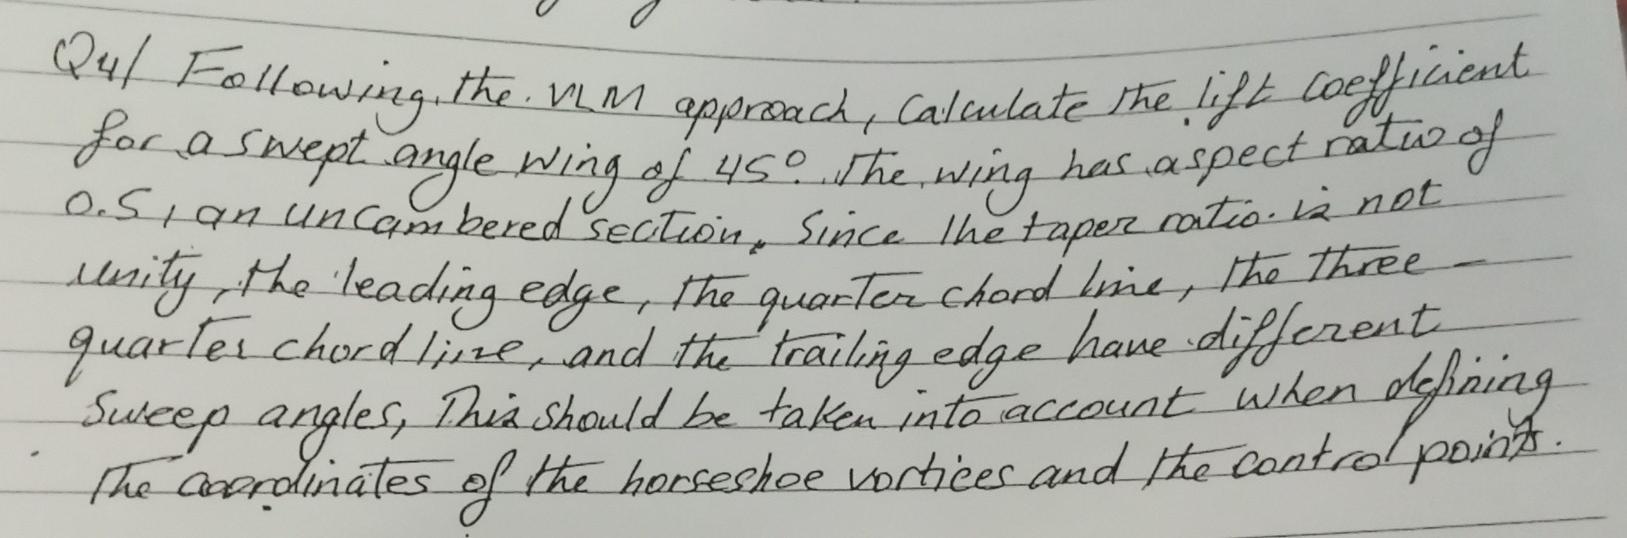 Q4/ Following, the VLM approach, Calculate the lift coefficient
for a swept angle wing of 45°. The wing has aspect ratio of
0.5, an uncambered section. Since the taper ratio is not
unity, the leading edge, the quarter chord line, the three-
quarter chord line, and the trailing edge have different
sweep angles, This should be taken into account when defining
the coordinates of the horseshoe vortices and the control points.